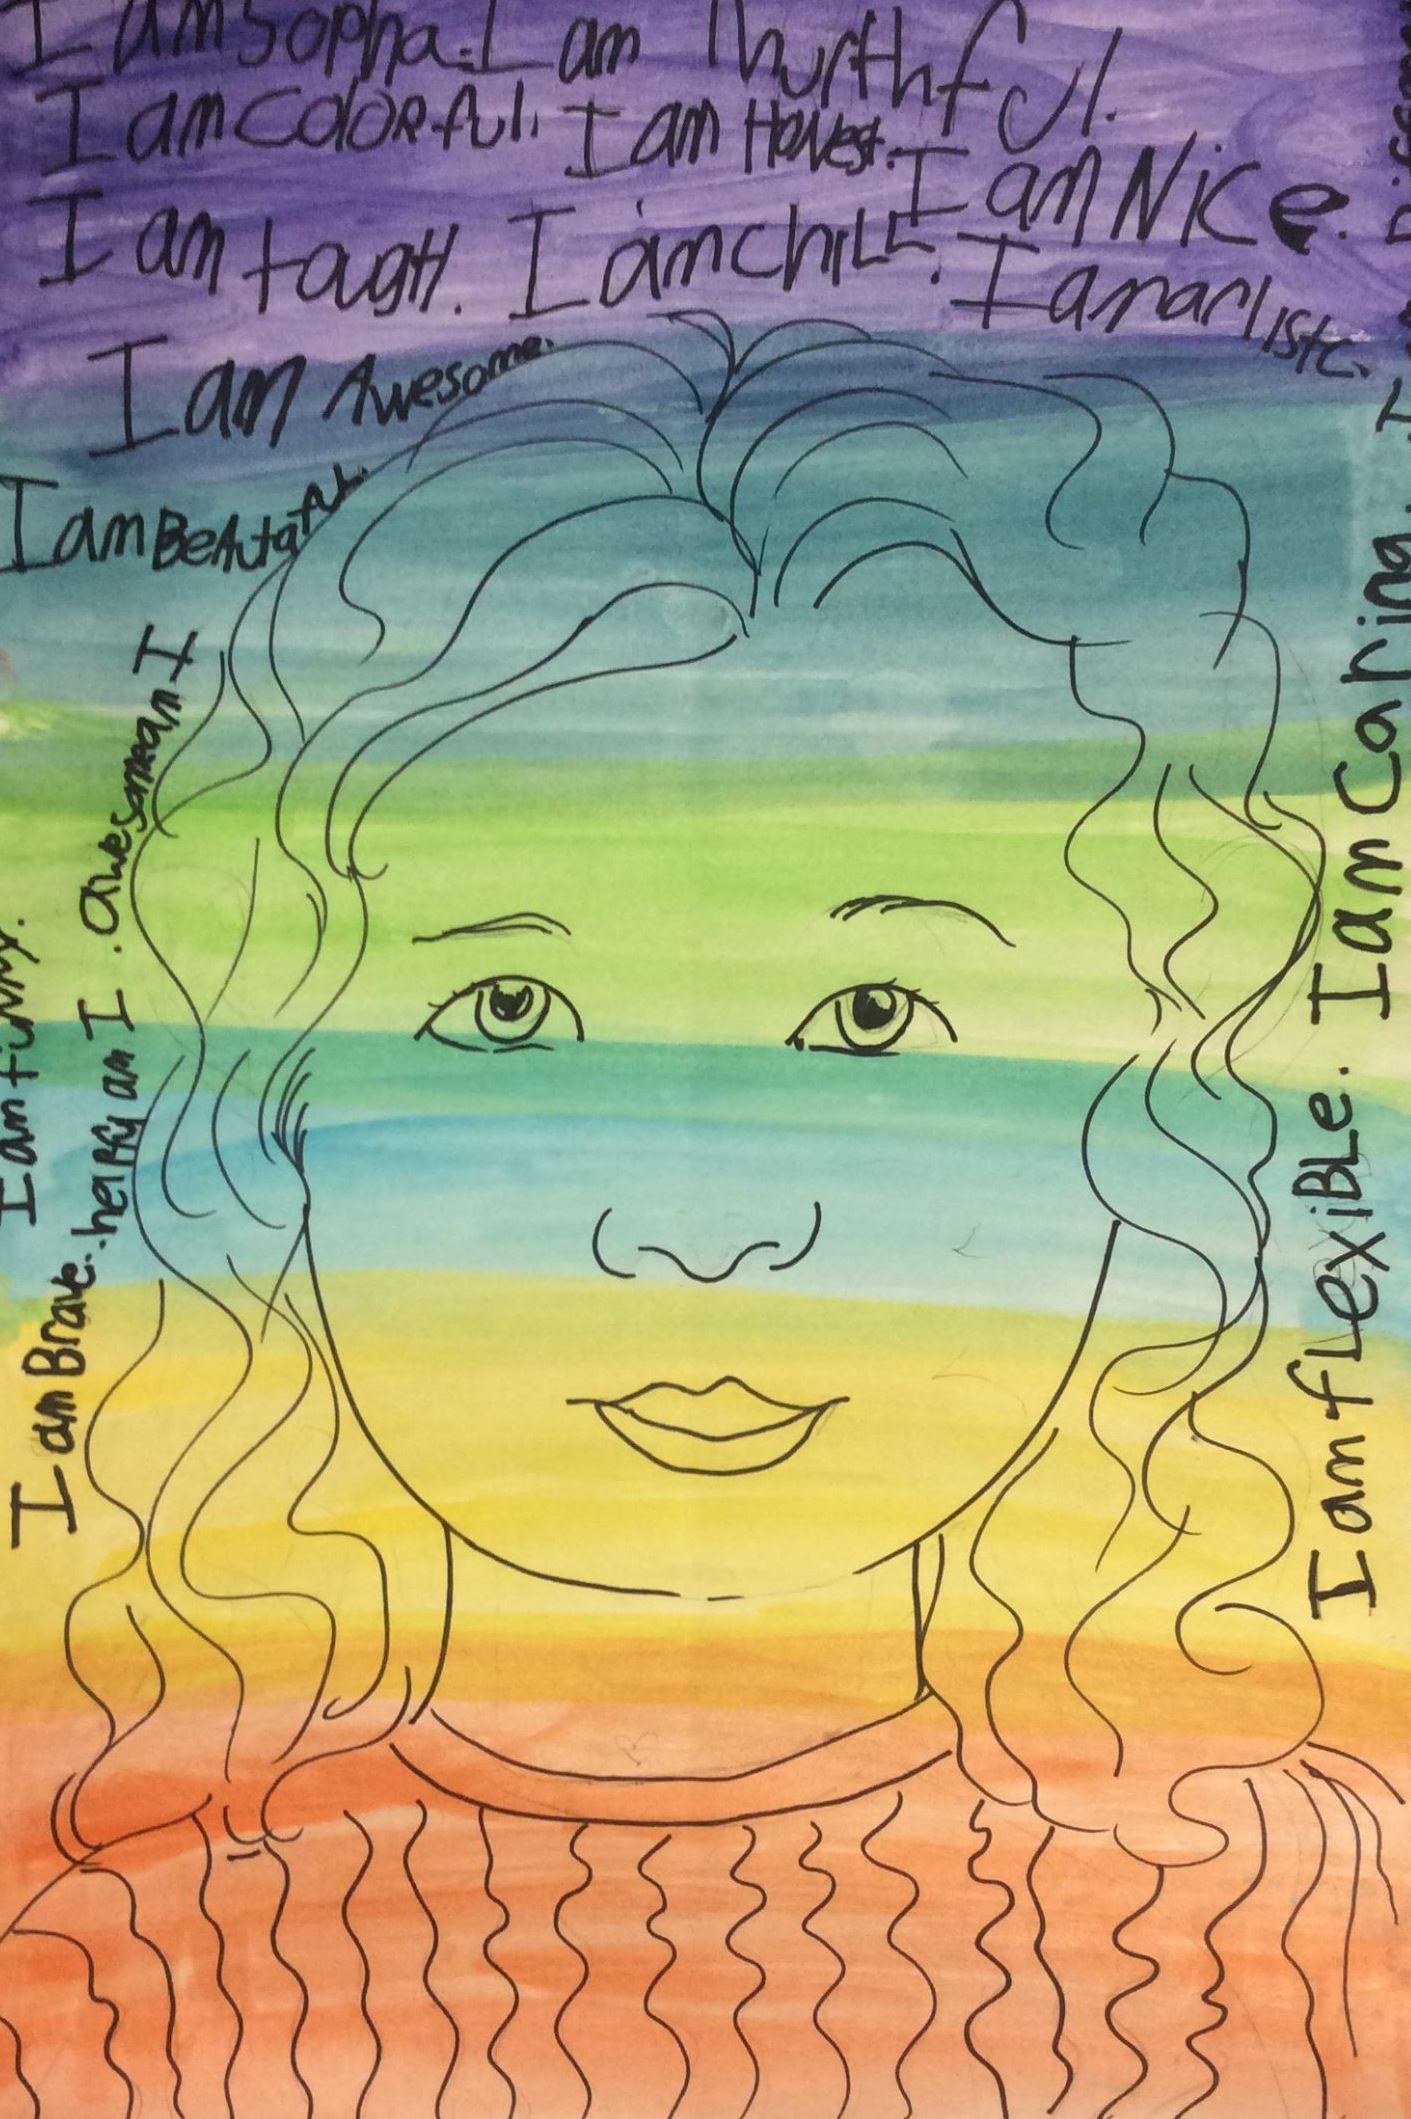 I am Sopha. I am Thurthful.
I am Colorful. I am Honest.
I am Nice.
I am tougH. I am chiLL.
I am arlistc.
I am Awesome.
I am BeAutaful.
I am funny.
I am Brave.
helpfu am I . awesomeam I
I am fLexiBLe. I am Caring. I